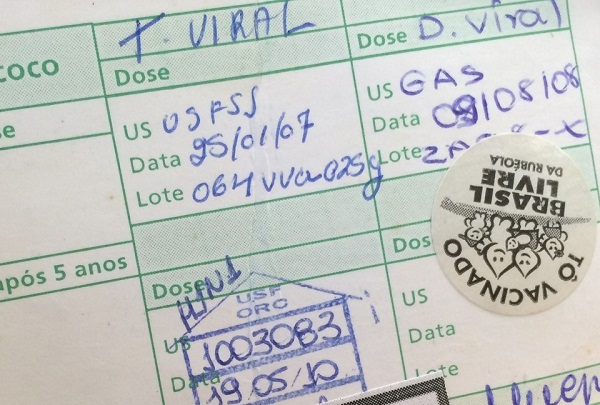 T. VIRAL
Dose
US USFSS
Data 25/01/07
Lote 064VVa025y
Dose D. Viral
US GAS
Data 09/08/08
Lote
COCO
após 5 anos
Dose H1N1
USF
ORC
US 1003083
Data 19/05/10
TÔ VACINADO
BRASIL
LIVRE
DA RUBÉOLA
Dose
US
Data